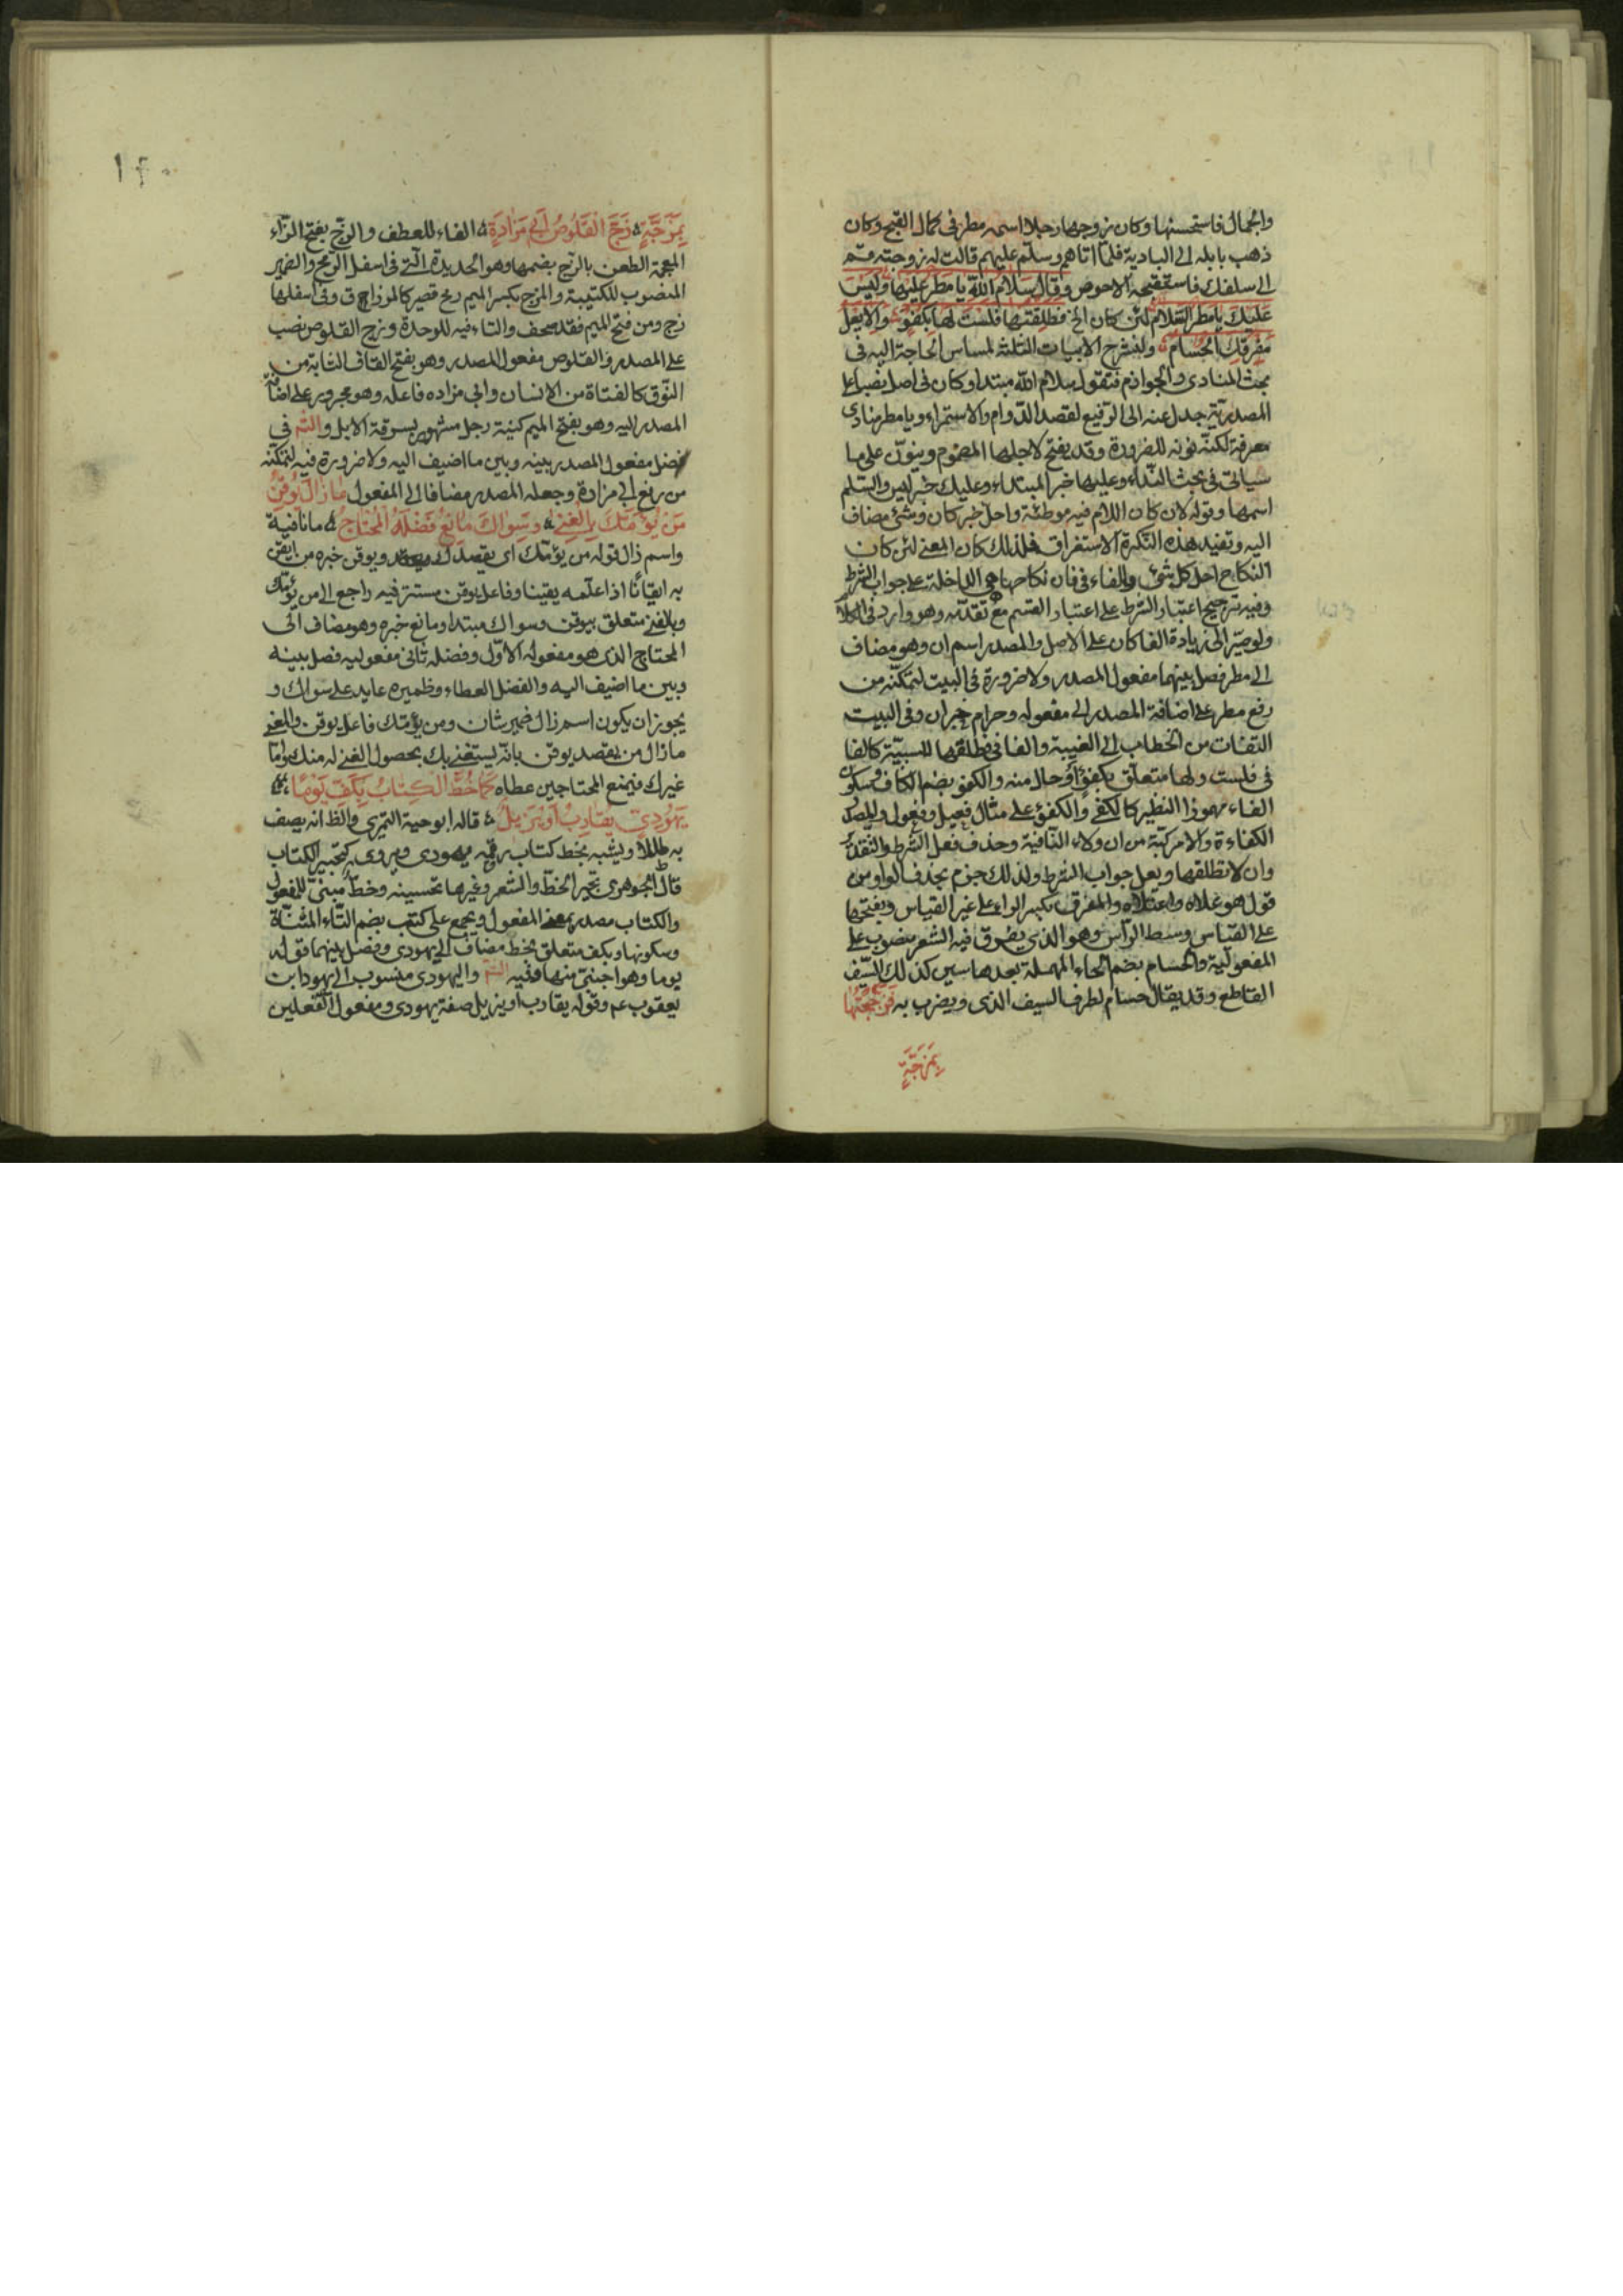 والجمال فاستحسنها وكان زوجها رجلا اسمه مطر فى كمال القبح وكان
ذهب بابله الى البادية فلما اتاهم وسلم عليهم قالت له زوجته قم
الى سلفك فاستقبحه الاحوص وقال سلام الله يا مطر عليها وليس
عليك يا مطر السلام لئن كان الخ فطلقها فلست لها بكفؤ والا يعل
مفرقك الحسام ولنشرح الابيات الثلثة لمساس الحاجة اليه فى
بحث المنادى والجوازم فنقول سلام الله مبتدا وكان فى اصل نصبا على
المصدرية عدل عنه الى الرفع لقصد الدوام والاستمرار ويا مطر منادى
معرفة لكنه نونه للضرورة وقد يفتح لاجلها المضموم وينون على ما
سياتى فى بحث النداء وعليها خبر المبتداء وعليك خبر ليس والسلم
اسمها وقوله لان كان اللام فيه موطئة واحل خبر كان وشئ مضاف
اليه وتفيد هذه النكرة الاستغراق فلذلك كان المعنى لئن كان
النكاح احل كل شئ والفاء فى فان نكاحها هى الداخلة على جواب الشرط
وفيه ترجيح اعتبار الشرط على اعتبار القسم مع تقدمه وهو وارد فى الكلام
ولو صير الى زيادة الفا كان على الاصل والمصدر اسم ان وهو مضاف
الى مطر فصل بينهما مفعول المصدر ولا ضرورة فى البيت لتمكنه من
رفع مطر على اضافة المصدر الى مفعوله وحرام خبر ان وفى البيت
التفات من الخطاب الى الغيبة والفا فى فطلقها للسببية كالفا
فى فلست ولها متعلق بكفؤ او حال منه والكفؤ بضم الكاف وسكون
الفاء مهموزا النظير كالكفئ والكفؤ على مثال فعيل وفعول والمصدر
الكفاءة والا مركبة من ان ولاء النافية وحذف فعل الشرط والتقدير
وان لا تطلقها ويعل جواب الشرط ولذلك جزم بحذف الواو من
قولهم علاه واعتلاه والمفرق بكسر الراء على غير القياس وبفتحها
على القياس وسط الرأس وهو الذى يفرق فيه الشعر منصوب على
المفعولية والحسام بضم الحاء المهملة بعدها سين كذلك السيف
القاطع وقد يقال حسام لطرف السيف الذى ويضرب به فزججتها
بمزجة
١٢٠
بمزجة زج القلوص ابى مزادة الفاء للعطف والزج بفتح الزاء
المعجمة الطعن بالزج بضمها وهو الحديدة التى فى اسفل الرمح والضمير
المنصوب للكتيبة والمزج بكسر الميم رمح قصير كالمزراق وفى اسفلها
زج ومن فتح الميم فقد صحف والتاء فيه للوحدة وزج القلوص نصب
على المصدر والقلوص مفعول المصدر وهو بفتح القاف الشابة من
النوق كالفتاة من الانسان وابى مزاده فاعله وهو مجرور على اضافة
المصدر اليه وهو بفتح الميم كنية رجل مشهور بسرقة الابل والشم فى
فصل مفعول المصدر بينه وبين ما اضيف اليه ولا ضرورة فيه لتمكنه
من رفع ابى مزادة وجعله المصدر مضافا الى المفعول ما زال يوقن
من يؤمك بالغنى وسواك مانع فضله المحتاج ما نافية
واسم زال قوله من يؤمك اى يقصدك ويوقن خبره من ايقن
به ايقانا اذا علمه يقينا وفاعل يوقن مستتر فيه راجع الى من يؤمك
وبالغنى متعلق بيوقن وسواك مبتدا ومانع خبره وهو مضاف الى
المحتاج الذى هو مفعوله الاول وفضله ثانى مفعوليه فصل بينه
وبين ما اضيف اليه والفضل العطاء وضميره عايد على سواك و
يجوز ان يكون اسم زال ضمير شان ومن يؤمك فاعل يوقن والمعنى
ما زال من يقصد يوقن بانه يستغنى بك بحصول الغنى له منك واما
غيرك فيمنع المحتاجين عطاه كما خط الكتاب بكف يوما
يهودى يقارب او يزيل قاله ابو حية النمرى والظ انه يصف
به طللا ويشبه بخط كتاب رقمه يهودى ويروى كتحبير الكتاب
قال الجوهرى تحبير الخط والشعر وغيرها تحسينه وخط مبنى للمفعول
والكتاب مصدر بمعنى المفعول ويجمع على كتب بضم التاء المثناة
وسكونها وبكف متعلق بخط مضاف الى يهودى وفصل بينهما قوله
يوما وهو اجنبى منها وفيه الشم واليهودى منسوب الى يهودا بن
يعقوب عم وقوله يقارب او يزيل صفة يهودى ومفعول الفعلين